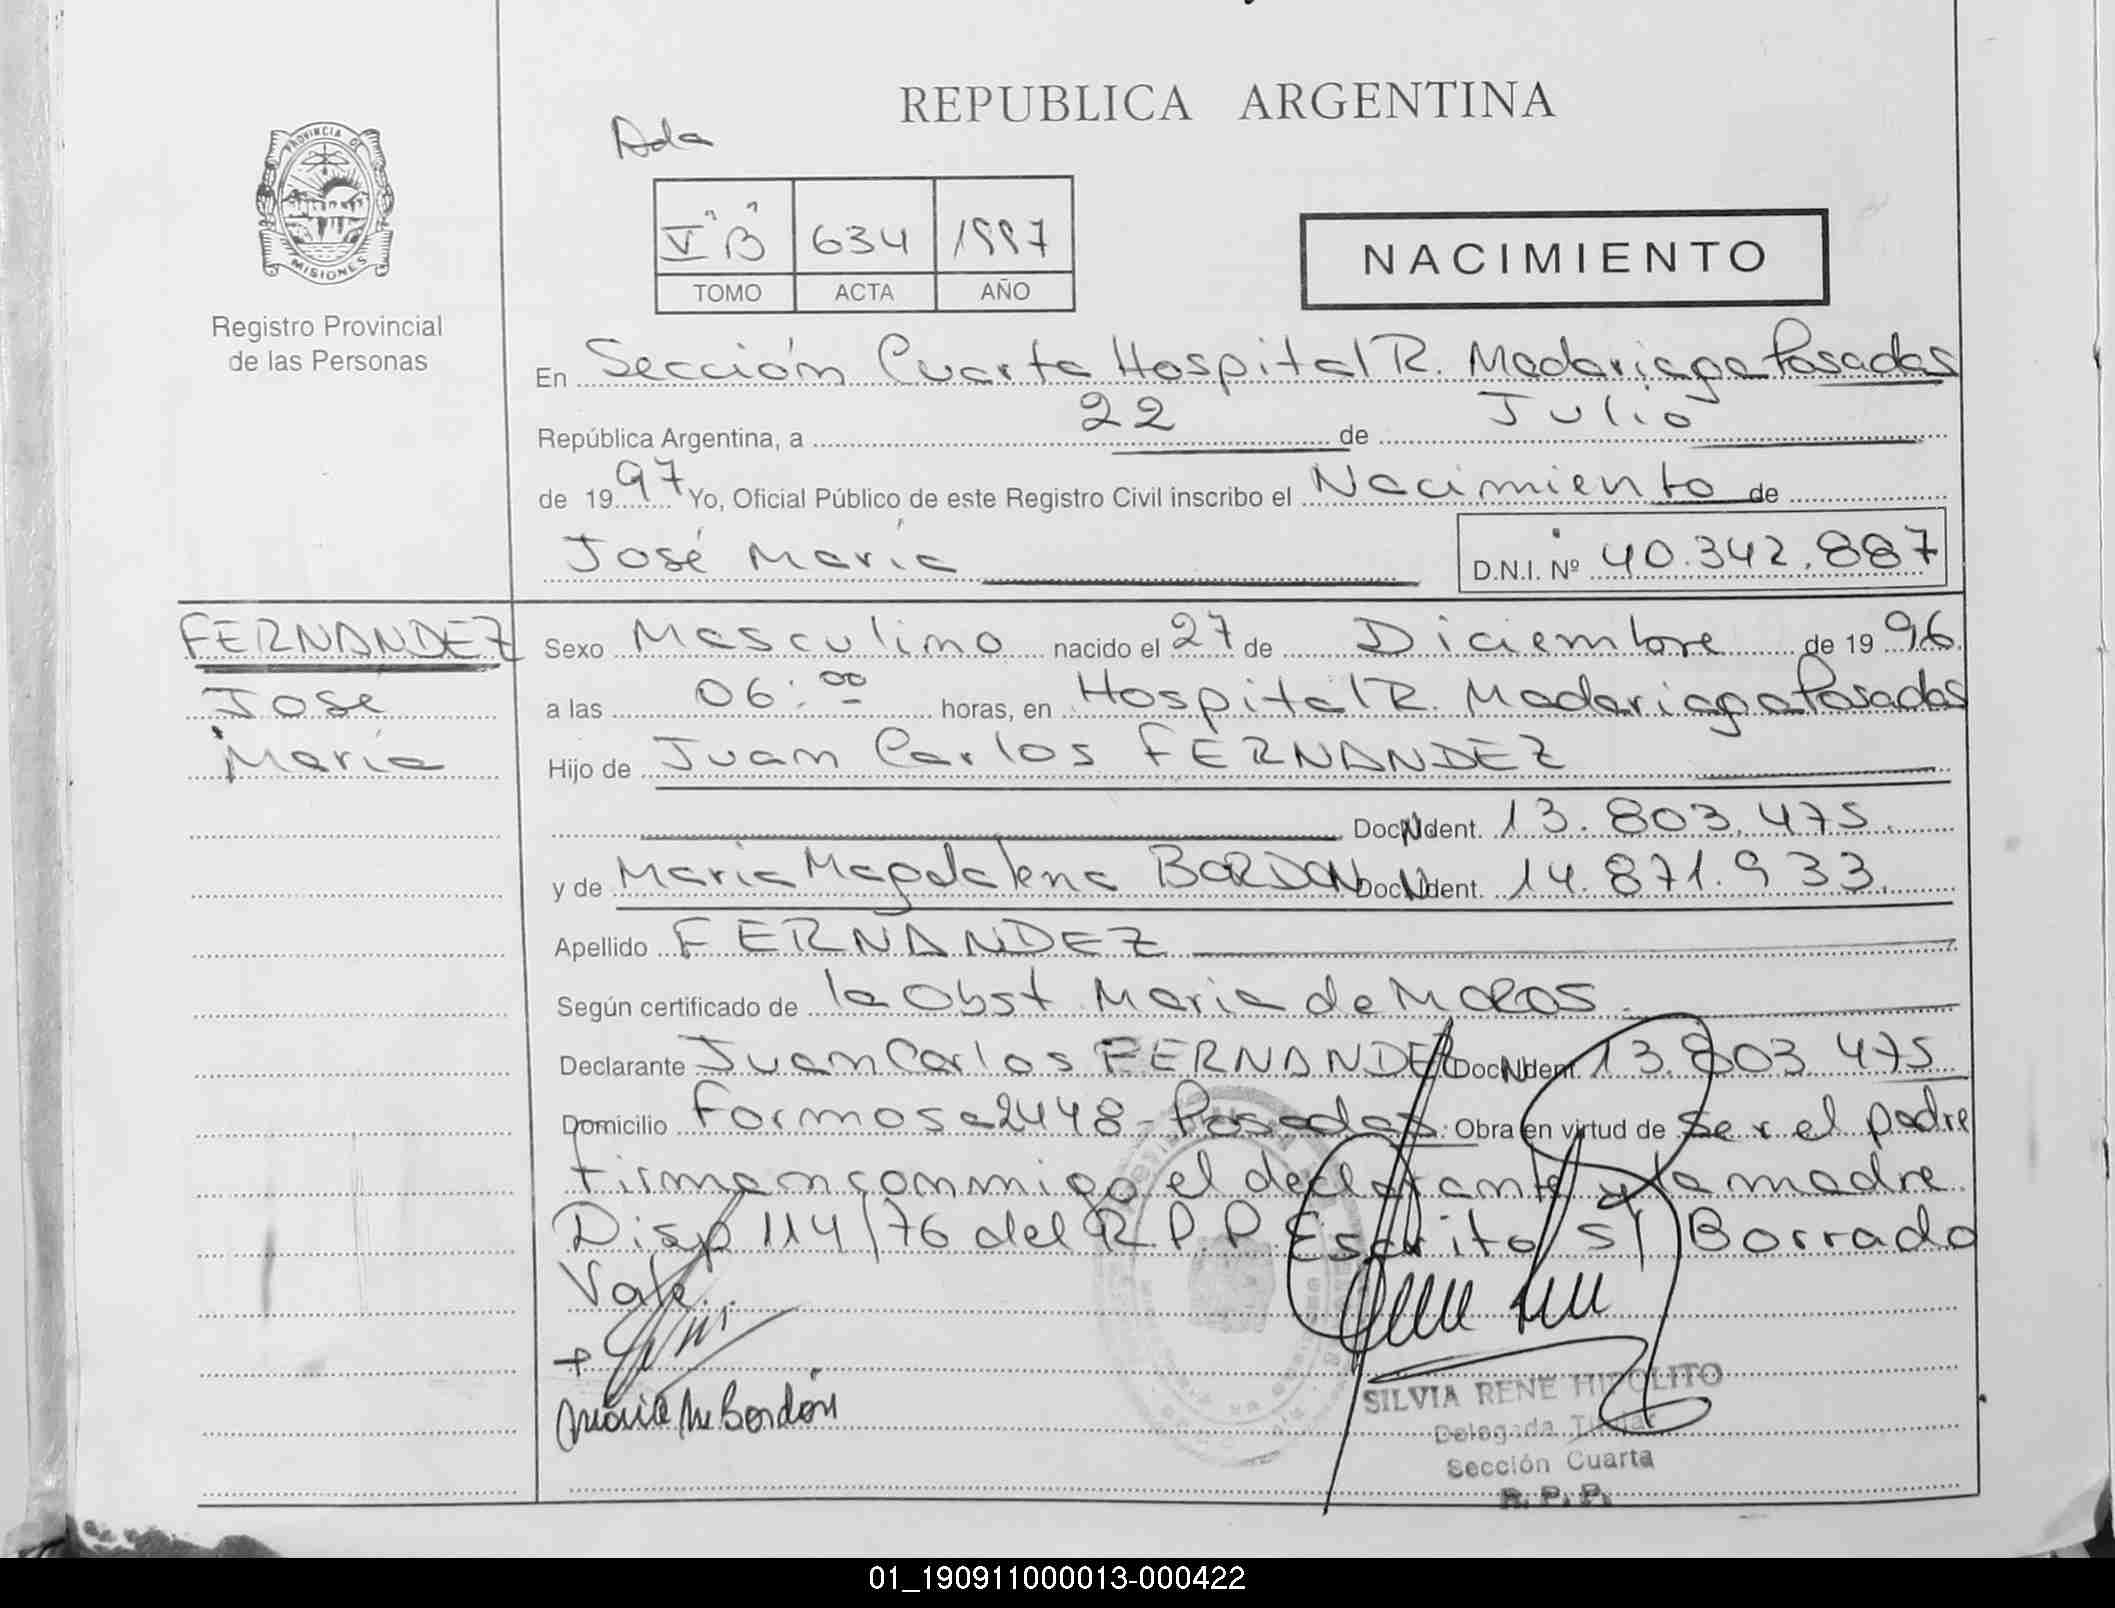 REPUBLICA ARGENTINA
Ada
PROVINCIA DE
MISIONES
Registro Provincial
de las Personas
V "B" 634 1997
TOMO ACTA AÑO
NACIMIENTO
En Sección Cuarta Hospital R. Madariaga Posadas
República Argentina, a 22 de Julio
de 1997 Yo, Oficial Público de este Registro Civil inscribo el Nacimiento de
José María D.N.I. Nº 40.342.887
FERNANDEZ
José
María
Sexo Masculino nacido el 27 de Diciembre de 1996
a las 06:00 horas, en Hospital R. Madariaga Posadas
Hijo de Juan Carlos FERNANDEZ
Doc. N Ident. 13.803.475.
y de María Magdalena BORDON Doc. N Ident. 14.871.933.
Apellido FERNANDEZ
Según certificado de la Obst María de MOROS
Declarante Juan Carlos FERNANDEZ Doc. N Ident. 13.803.475
Domicilio Formosa 2448 - Posadas. Obra en virtud de Ser el padre
firman conmigo el declarante y la madre
Disp 114/76 del R.P.P Escrito s/ Borrado
Vale.
María M Bordón
SILVIA RENE HIPOLITO
Delegada Titular
Sección Cuarta
R. P. P.
01_190911000013-000422